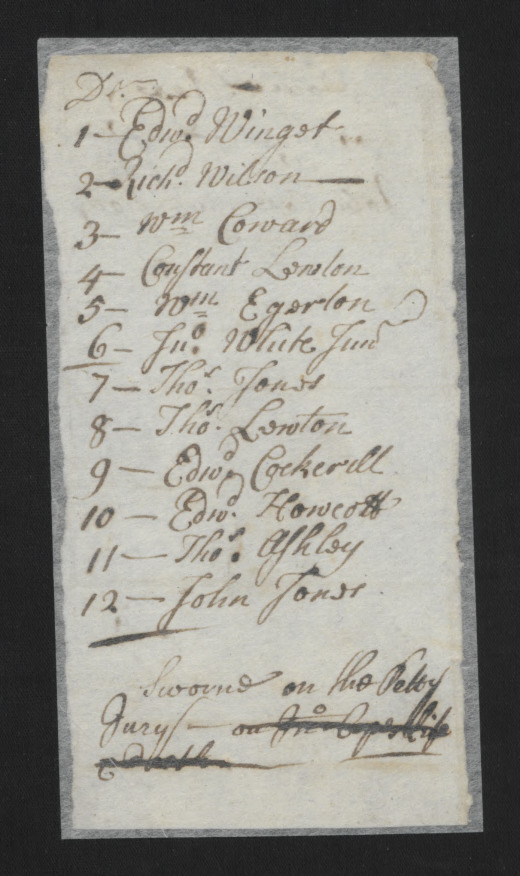 1 — Edwd. Winget
2 — Richd. Wilson —
3 — Wm Coward
4 — Constant Lewton
5 — Wm Egerton
6 — Jno. White Junr
7 — Thos. Jones
8 — Thos. Lewton
9 — Edwd. Cockerill
10 — Edwd. Howcott
11 — Thos. Ashley
12 — John Jones
Sworne on the Petty
Jury — on Jno.